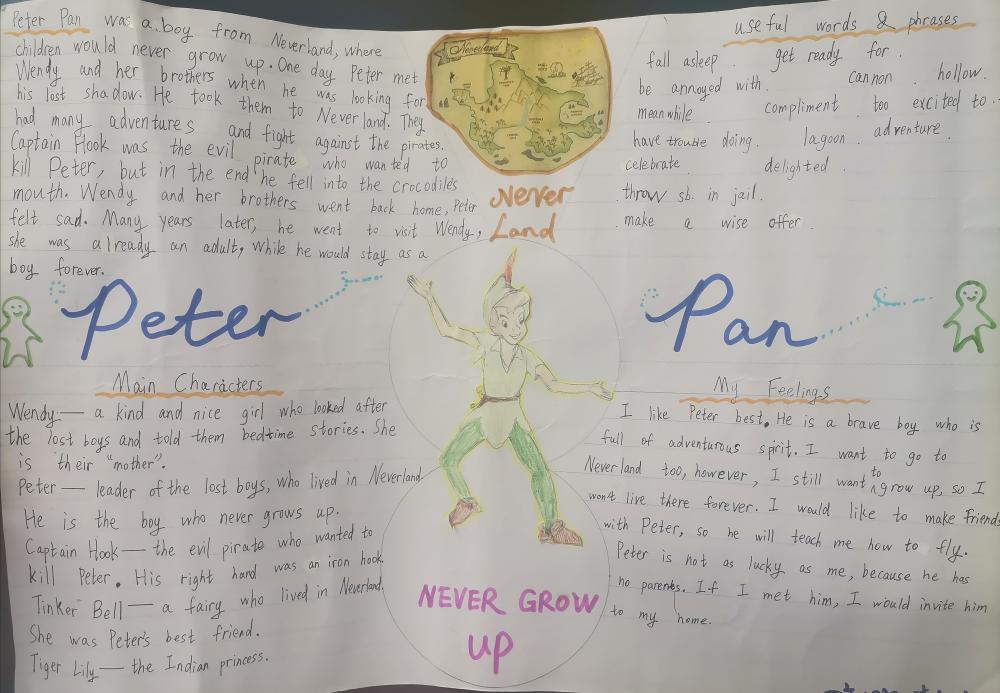 Peter Pan was a boy from Neverland, where
children would never grow up. One day Peter met
Wendy and her brothers when he was looking for
his lost shadow. He took them to Neverland. They
had many adventures and fight against the pirates.
Captain Hook was the evil pirate who wanted to
kill Peter, but in the end he fell into the Crocodile's
mouth. Wendy and her brothers went back home, Peter
felt sad. Many years later, he went to visit Wendy,
she was already an adult, while he would stay as a
boy forever.
Neverland
Never
Land
useful words & phrases
fall asleep. get ready for.
be annoyed with. cannon. hollow.
meanwhile. compliment. too excited to...
have trouble doing. lagoon. adventure.
celebrate. delighted.
throw sb. in jail.
make a wise offer.
Peter Pan
Main Characters
Wendy — a kind and nice girl who looked after
the lost boys and told them bedtime stories. She
is their "mother".
Peter — leader of the lost boys, who lived in Neverland.
He is the boy who never grows up.
Captain Hook — the evil pirate who wanted to
kill Peter. His right hand was an iron hook.
Tinker Bell — a fairy who lived in Neverland.
She was Peter's best friend.
Tiger Lily — the Indian princess.
NEVER GROW
UP
My Feelings
I like Peter best. He is a brave boy who is
full of adventurous spirit. I want to go to
Neverland too, however, I still want to grow up, so I
won't live there forever. I would like to make friends
with Peter, so he will teach me how to fly.
Peter is not as lucky as me, because he has
no parents. If I met him, I would invite him
to my home.